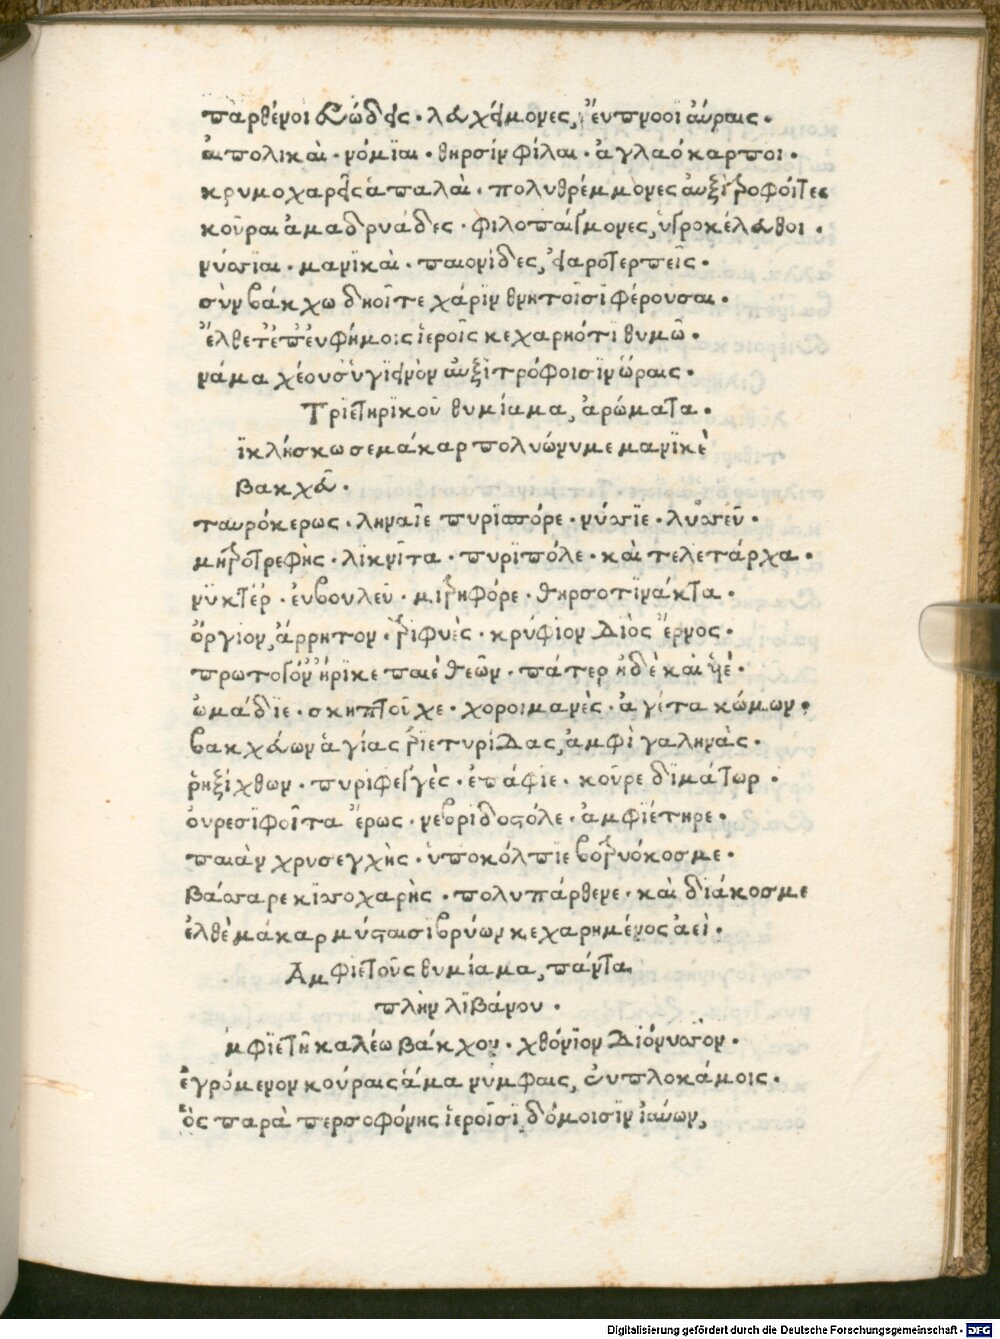 παρθένοι ἐυώδεις · λευχείμονες, ἔυπνοοι ἀύραις ·
ἀιπολικαὶ · νόμϊαι · θηρσὶν φίλαι · ἀγλαόκαρποι ·
κρυμοχαρεῖς ἁπαλαὶ · πολυθρέμμονες ἀυξϊτροφόιτε
κοῦραι ἁμαδρυάδες · φιλοπάιγμονες, ὑγροκέλευθοι ·
νύσϊαι · μανϊκαὶ · παιονίδες, ἐιαροτερπεῖς ·
σὺν βάκχω δηοῖ τε χάριν θνητοῖσϊ φέρουσαι ·
ἔλθετ' ἐπ' ἐυφήμοις ἱεροῖς κεχαρηότϊ θυμῶ ·
νάμα χέουσ' ὑγιεινὸν ἀυξϊτρόφοισϊν ὥραις ·
Τρϊετηρϊκοῦ θυμίαμα, ἀρώματα ·
ϊκλήσκω σε μάκαρ πολυώνυμε μανϊκὲ
Βακχεῦ ·
ταυρόκερως · ληναῖε πυρίσπορε · νύσϊε · λυσεῦ ·
μηροτρεφὴς · λϊκνῖτα · πυρϊπόλε · καὶ τελετάρχα ·
νϋκτέρ · ἐυβουλεῦ · μιτρηφόρε · θηρσοτϊνάκτα ·
ὄργϊον, ἄρρητον · τριφυὲς · κρύφϊον Διὸς ἔρνος ·
πρωτόγον' ἠρϊκεπαιὲ θεῶν · πάτερ ἠδὲ καὶ ὑιὲ ·
ὠμάδϊε · σκηπτοῦχε · χοροιμανὲς · ἀγέτα κώμων ·
βακχεύων ἁγίας τρϊετηρίΔας, ἀμφὶ γαληνὰς ·
ῥηξίχθων · πυρϊφεγγὲς · ἐπάφϊε · κοῦρε διμάτωρ ·
ὀυρεσϊφοῖτα ἔρως · νεβριδοστόλε · ἀμφιέτηρε ·
παιὰν χρυσεγχὴς · ὑποκόλπϊε βοτρυόκοσμε ·
Βάσσαρε κϊσσοχαρὴς · πολυπάρθενε · καὶ διάκοσμε
ἐλθὲ μάκαρ μύσταισϊ βρύων κεχαρημένος ἀεὶ ·
Αμφϊετοῦς θυμίαμα, πάντα
πλὴν λϊβάνου ·
μφϊετῆ καλέω Βάκχον · χθόνϊον Διόνυσον ·
ἐγρόμενον κούραις ἅμα νύμφαις, ἐυπλοκάμοις ·
ὃς παρὰ περσοφόνης ἱεροῖσϊ δόμοισϊν ἰαύων,
Digitalisierung gefördert durch die Deutsche Forschungsgemeinschaft - DFG